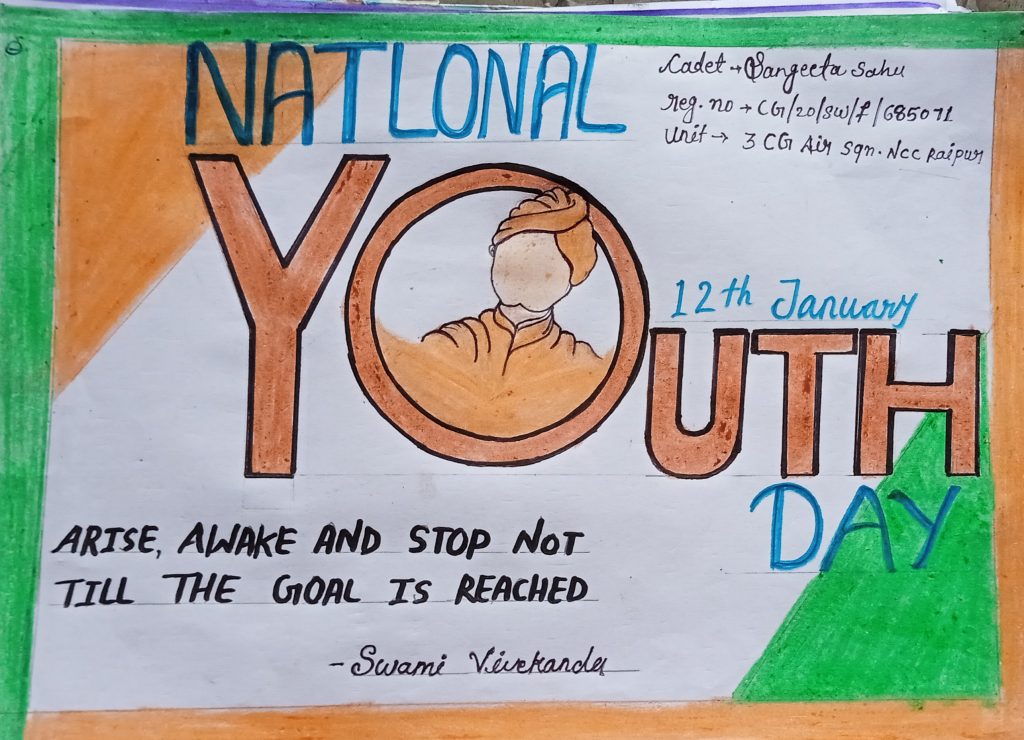 NATIONAL
Cadet → Sangeeta Sahu
reg. no → CG/20/SW/f/685071
Unit → 3 CG Air Sqn. NCC Raipur
YOUTH
12th January
DAY
ARISE, AWAKE AND STOP NOT
TILL THE GOAL IS REACHED
- Swami Vivekanda